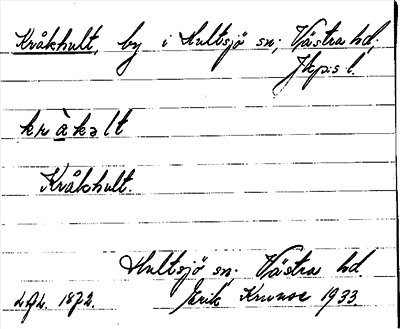 Kråkhult, by i Hultsjö sn; Västra hd,
Jkp:s l.
kràkəlt
Kråkhult.
Hultsjö sn. Västra hd.
1872. Erik 1933.